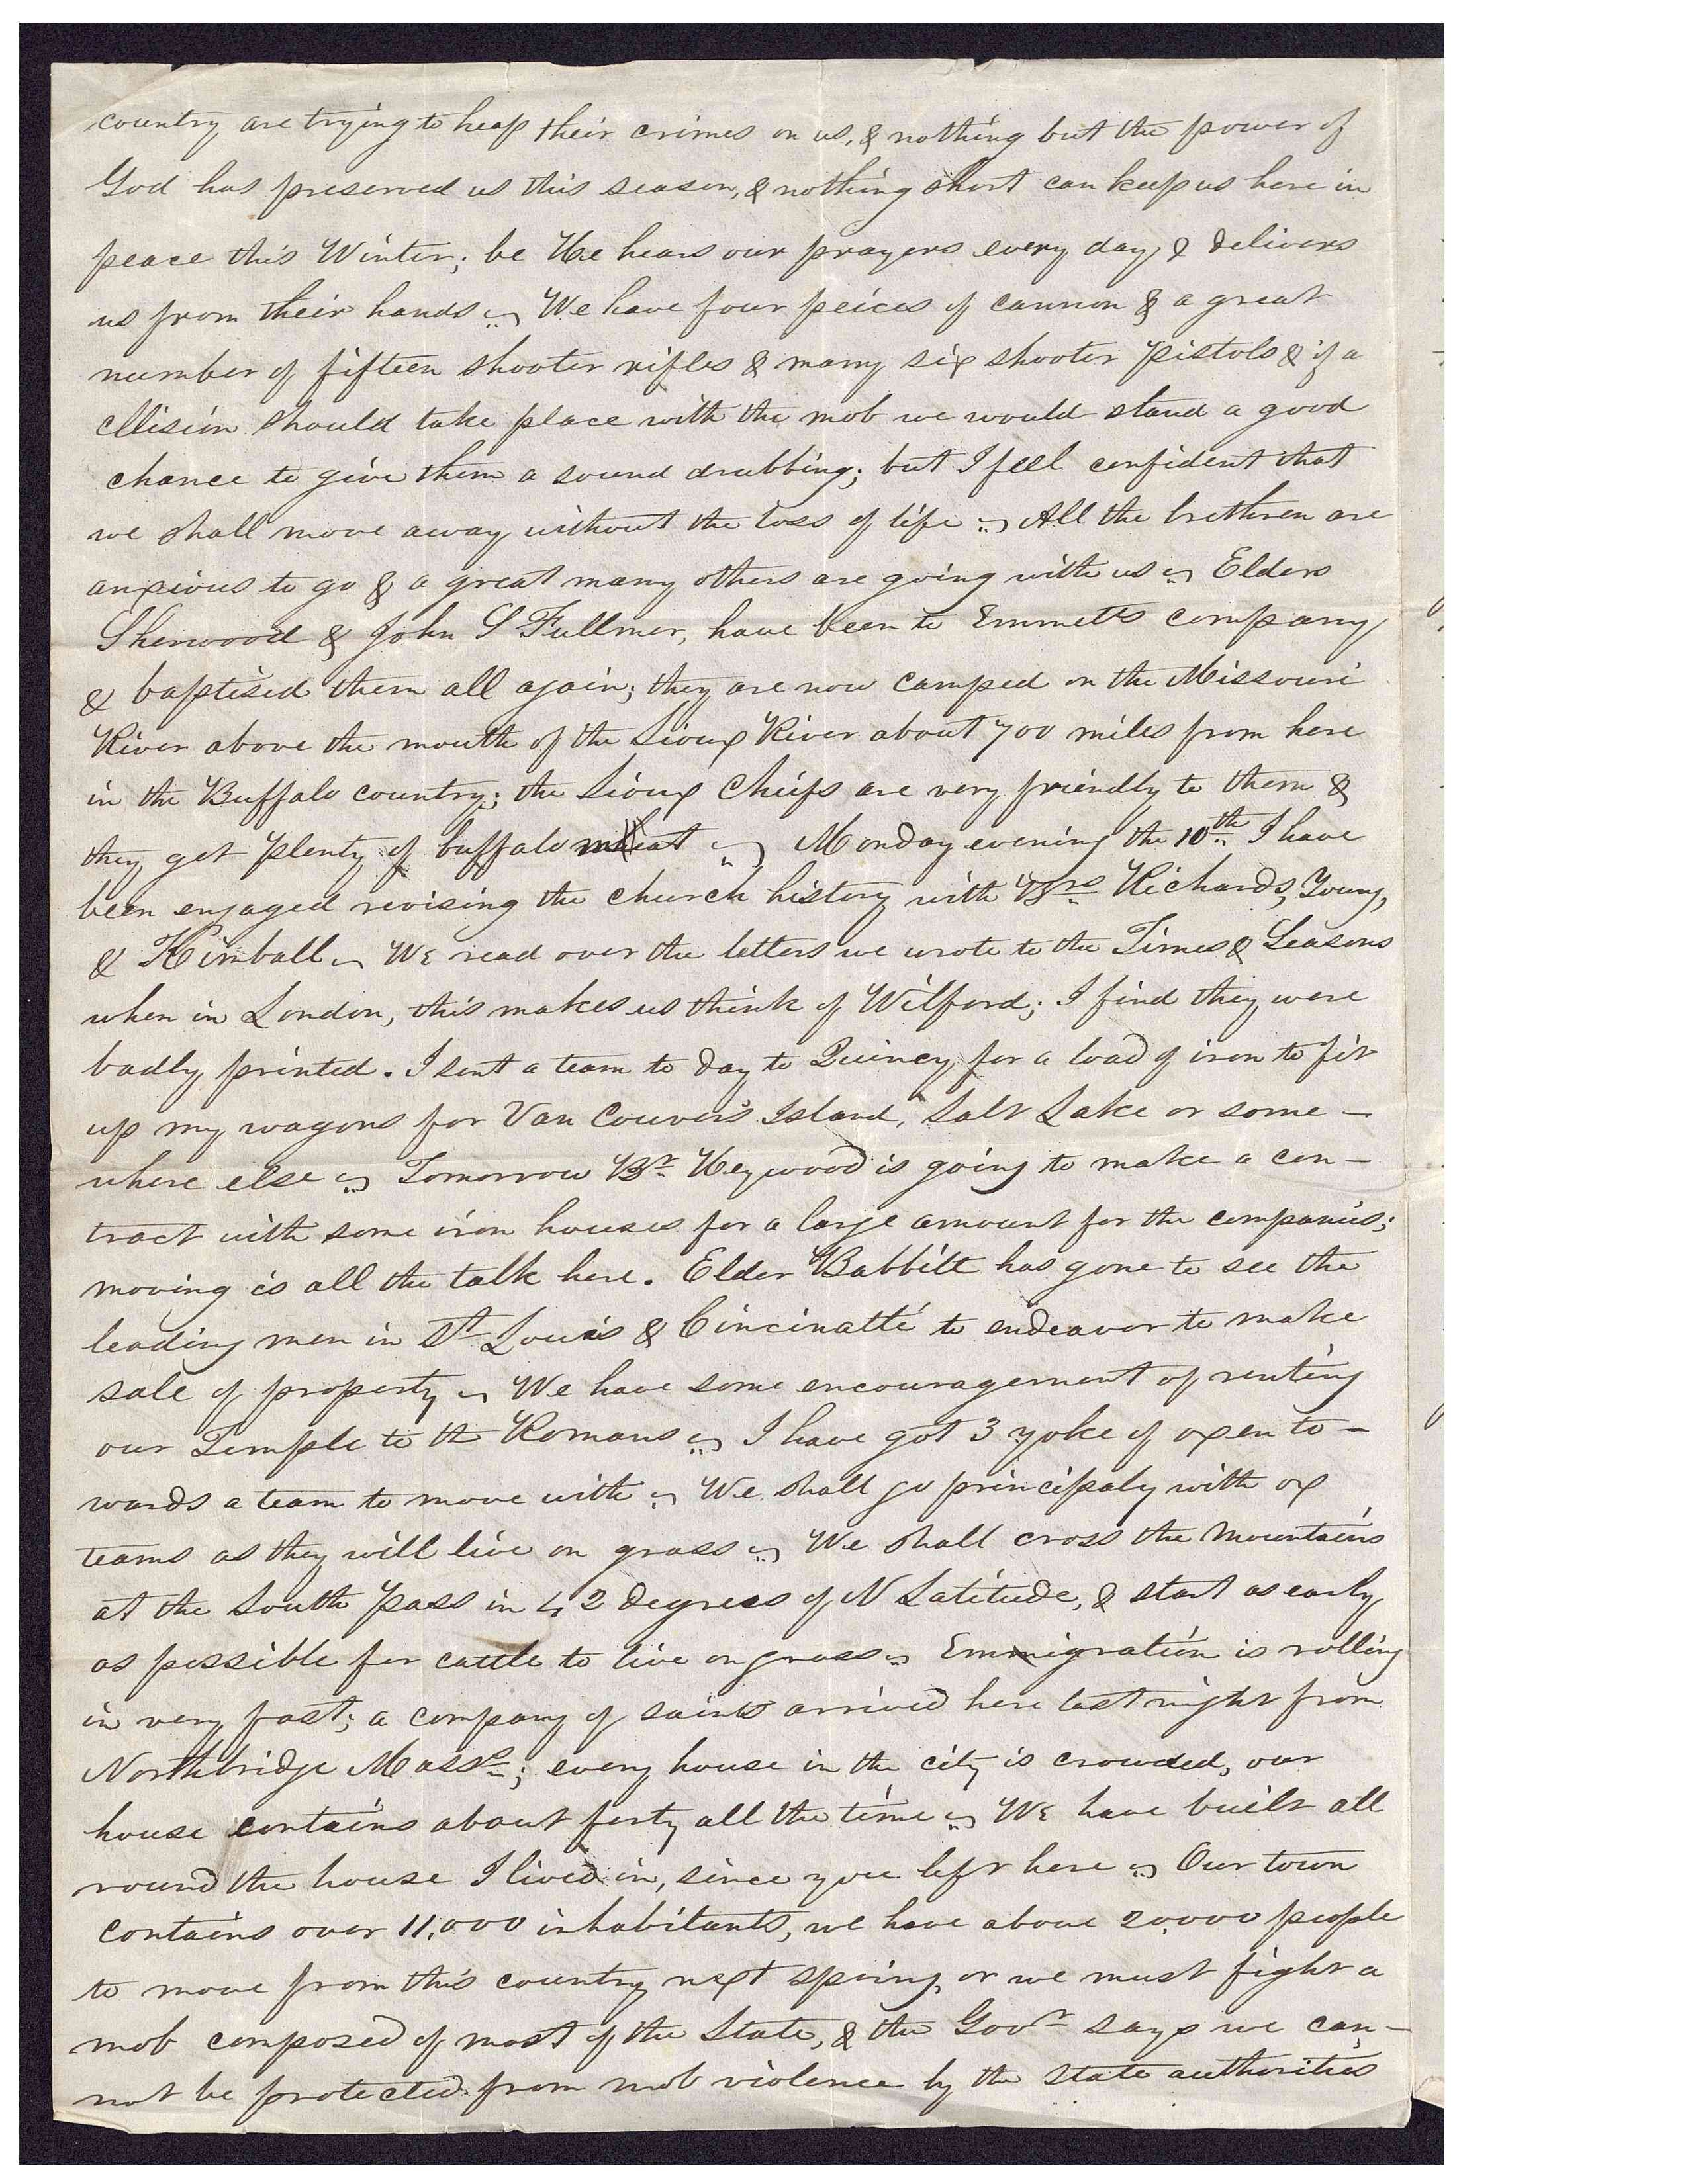 country are trying to heap their crimes on us, & nothing but the power of
God has preserved us this season, & nothing short can keep us here in
peace this Winter; be He hears our prayers every day, & delivers
us from their hands. We have four peices of cannon & a great
number of fifteen shooter rifles & many six shooter Pistols & if a
cllision should take place with the mob we would stand a good
chance to give them a sound drubbing; but I feel confident that
we shall move away without the loss of life. All the brethren are
anxious to go & a great many others are going with us. Elders
Sherwood & John S Fullmer, have been to Emmetts company
& baptised them all again; they are now camped on the Missouri
River above the mouth of the Sioux River about 700 miles from here
in the Buffalo country; the Sioux Chiefs are very friendly to them &
they get plenty of buffalo meat. Monday evening the 10th I have
been engaged revising the church history with Brs Richards, Young,
& Kimball. We read over the letters we wrote to the Times & Seasons
when in London, this makes us think of Wilford; I find they were
badly printed. I sent a team to day to Quincy for a load of iron to fit
up my wagons for Van Couver's Island, Salt Lake or some-
where else. Tomorrow Br. Heywood is going to make a con-
tract with some iron houses for a large amount for the companies;
moving is all the talk here. Elder Babbitt has gone to see the
leading men in St Louis & Cincinatti to endeavor to make
sale of property. We have some encouragement of renting
our Temple to th Romans. I have got 3 yoke of oxen to-
wards a team to move with. We shall go principaly with ox
teams as they will live on grass. We shall cross the Mountains
at the South Pass in 42 degrees of N Latitude, & start as early
as possible for cattle to live on grass. Emmigration is rolling
in very fast; a company of saints arrived here last night from
Northbridge Masss; every house in the city is crowded, our
house contains about forty all the time. We have built all
round the house I lived in, since you left here. Our town
contains over 11,000 inhabitants, we have above 20,000 people
to move from this country next spring, or we must fight a
mob composed of most of the State, & the Govr says we can-
not be protected from mob violence by the State authorities